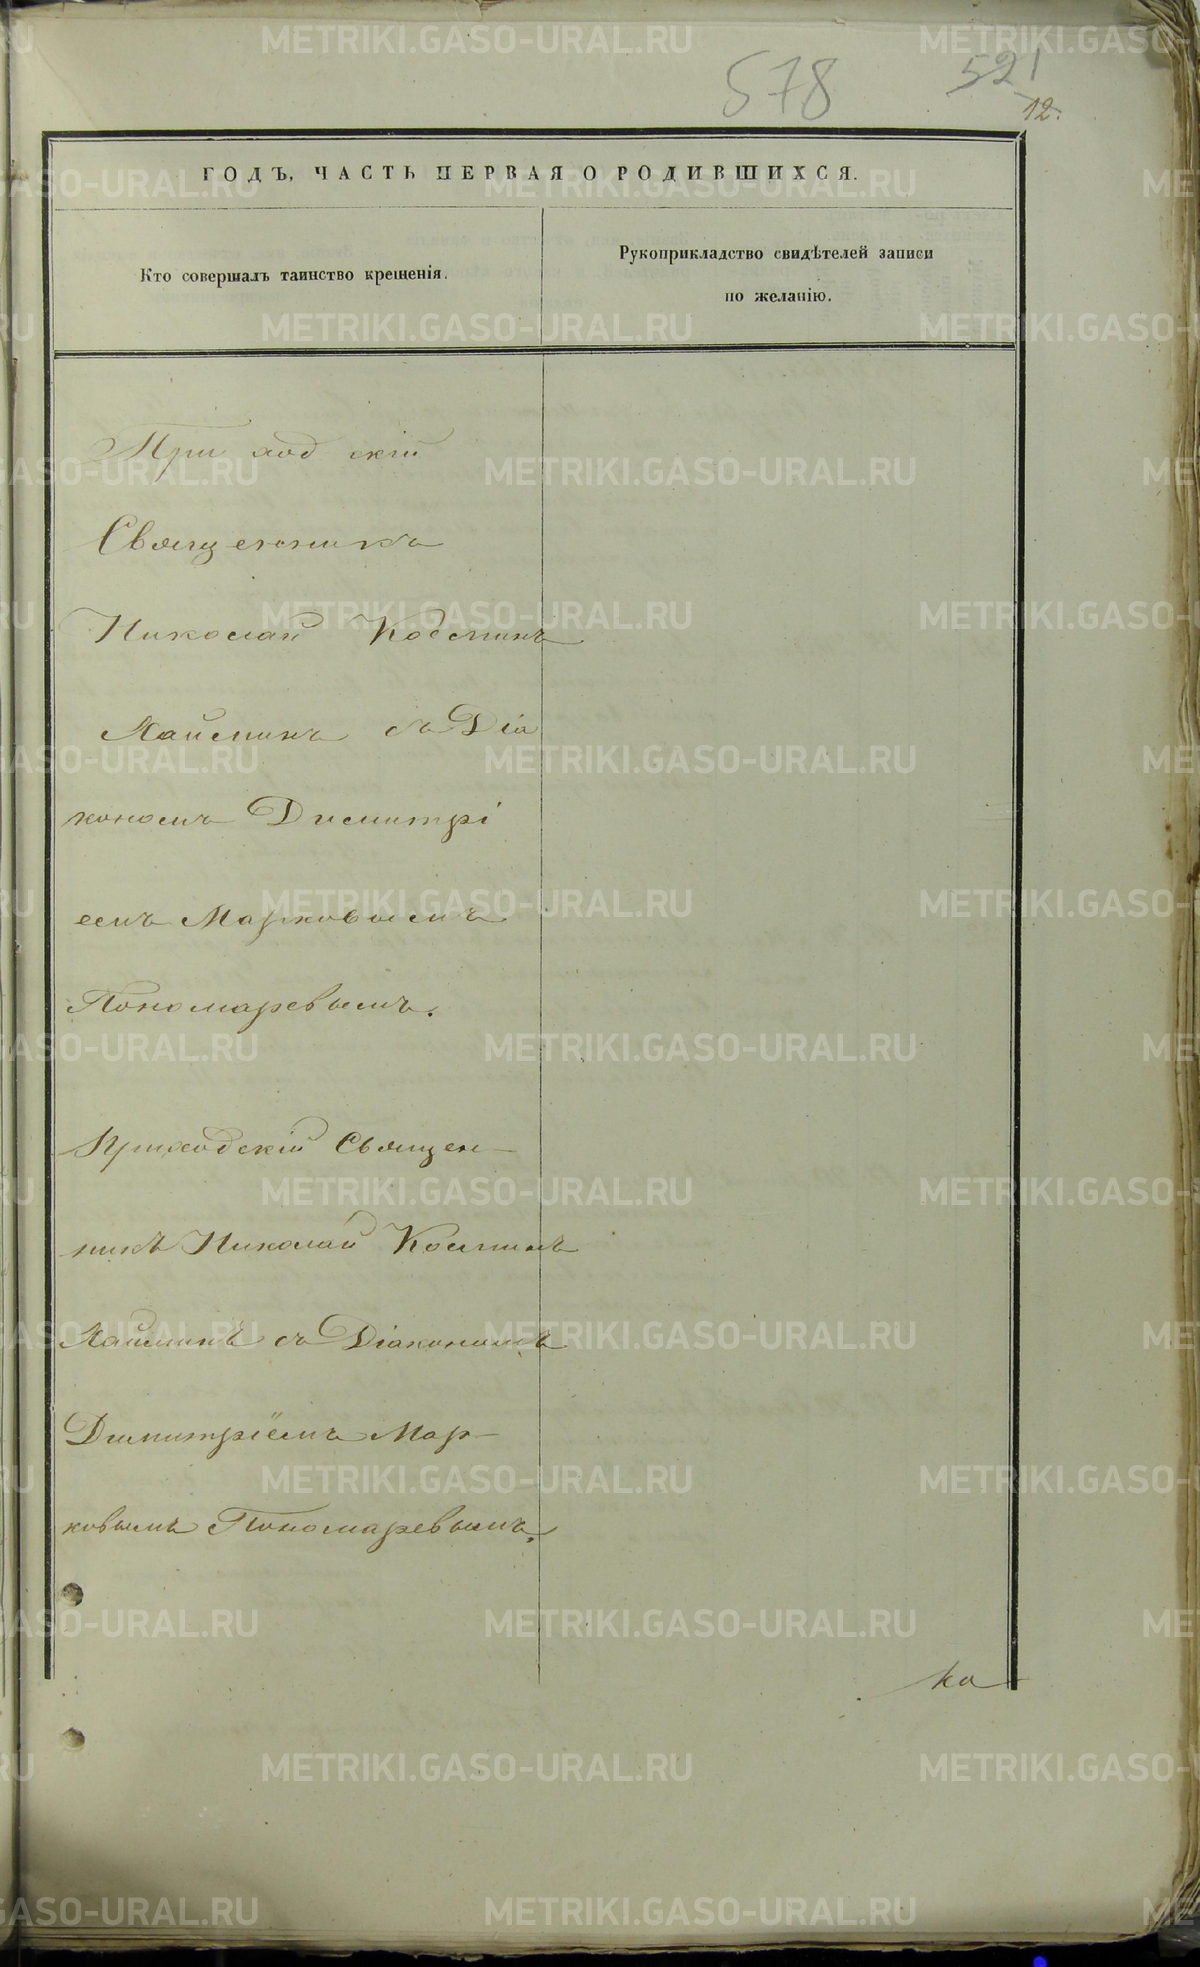 578
521
12.
ГОДЪ, ЧАСТЬ ПЕРВАЯ О РОДИВШИХСЯ.
Кто совершалъ таинство крещенія.
Рукоприкладство свидѣтелей записи
по желанію.
Приходскій
Священникъ
Николай Косминъ
съ Діа
кономъ Димитрі
емъ Марковымъ
Пономаревымъ.
Приходскій Священ-
никъ Николай Косминъ
съ Діакономъ
Димитріемъ Мар-
ковымъ Пономаревымъ.
ка
METRIKI.GASO-URAL.RU